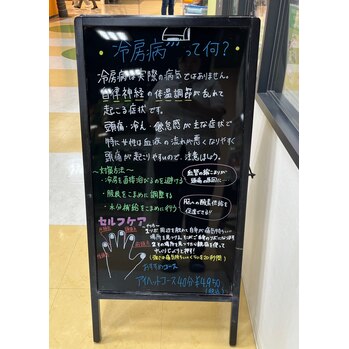 冷房病って何?
冷房病は実際の病気ではありません。
自律神経の体温調節が乱れて
起こる症状です。
頭痛・冷え・倦怠感が主な症状で
特に女性は血液の流れが悪くなりやすく
頭痛が起こりやすいので、注意しましょう。
〜対策方法〜
・冷房を直接浴びるのを避ける
・服装をこまめに調整する
・水分補給をこまめに行う
血管の縮こまりが
頭痛の原因に
脳への酸素供給を
促進できる!!
セルフケア
おすすめコース
アイヘッドコース 40分 ¥4,950
(税込)